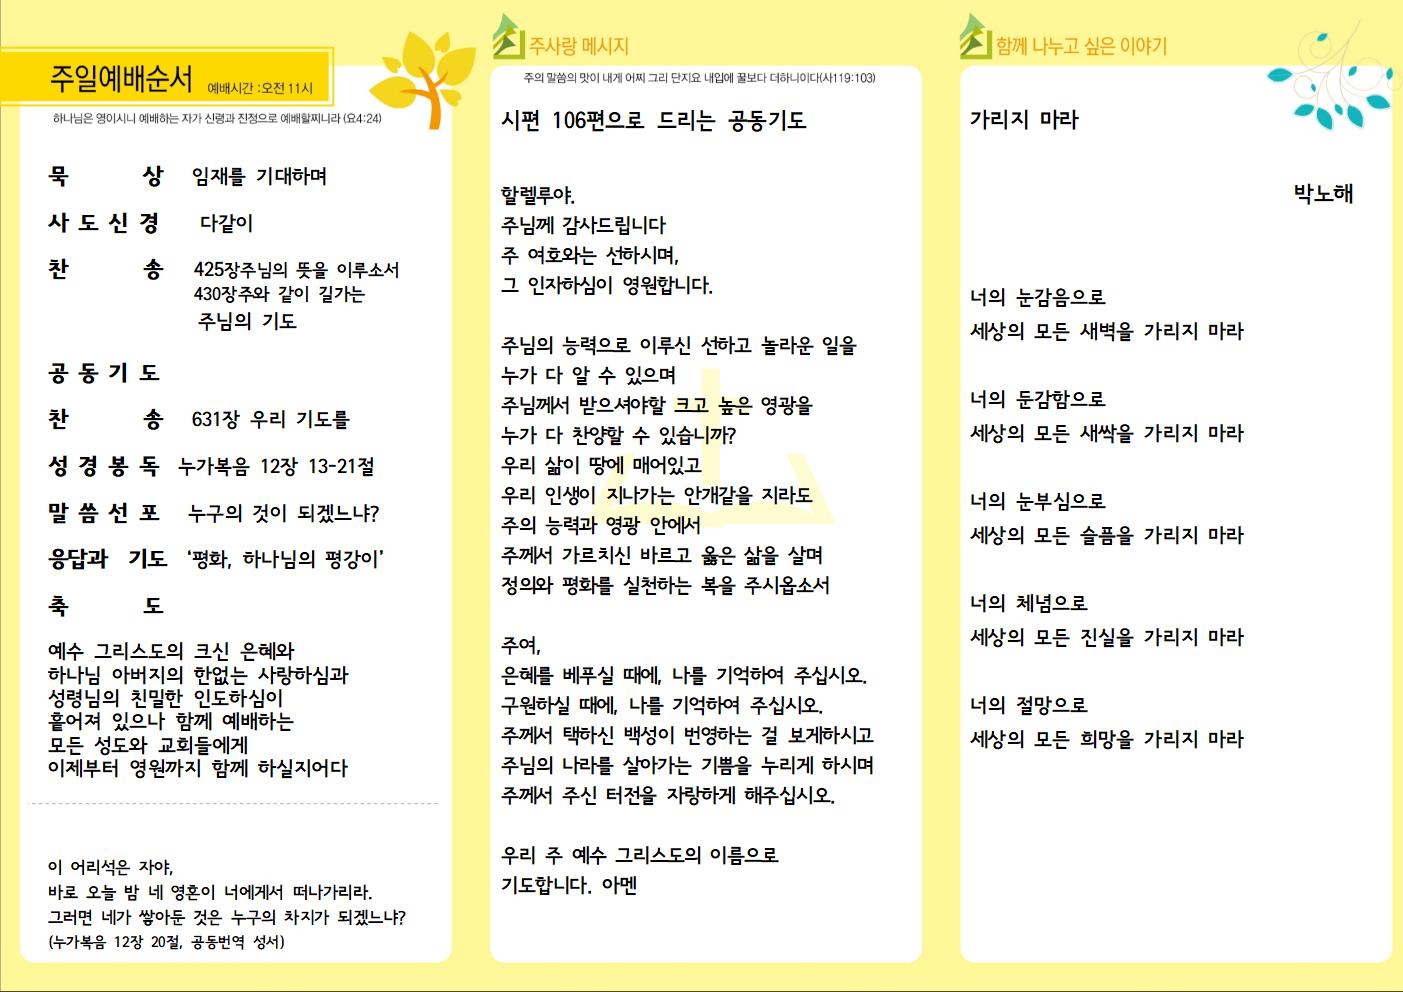 주일예배순서 예배시간 :오전 11시
하나님은 영이시니 예배하는 자가 신령과 진정으로 예배할찌니라 (요4:24)
묵 상 임재를 기대하며
사 도 신 경 다같이
찬 송 425장주님의 뜻을 이루소서
430장주와 같이 길가는
주님의 기도
공 동 기 도
찬 송 631장 우리 기도를
성 경 봉 독 누가복음 12장 13-21절
말 씀 선 포 누구의 것이 되겠느냐?
응답과 기도 ‘평화, 하나님의 평강이’
축 도
예수 그리스도의 크신 은혜와
하나님 아버지의 한없는 사랑하심과
성령님의 친밀한 인도하심이
흩어져 있으나 함께 예배하는
모든 성도와 교회들에게
이제부터 영원까지 함께 하실지어다
이 어리석은 자야,
바로 오늘 밤 네 영혼이 너에게서 떠나가리라.
그러면 네가 쌓아둔 것은 누구의 차지가 되겠느냐?
(누가복음 12장 20절, 공동번역 성서)
주사랑 메시지
주의 말씀의 맛이 내게 어찌 그리 단지요 내입에 꿀보다 더하니이다(사119:103)
시편 106편으로 드리는 공동기도
할렐루야.
주님께 감사드립니다
주 여호와는 선하시며,
그 인자하심이 영원합니다.
주님의 능력으로 이루신 선하고 놀라운 일을
누가 다 알 수 있으며
주님께서 받으셔야할 크고 높은 영광을
누가 다 찬양할 수 있습니까?
우리 삶이 땅에 매어있고
우리 인생이 지나가는 안개같을 지라도
주의 능력과 영광 안에서
주께서 가르치신 바르고 옳은 삶을 살며
정의와 평화를 실천하는 복을 주시옵소서
주여,
은혜를 베푸실 때에, 나를 기억하여 주십시오.
구원하실 때에, 나를 기억하여 주십시오.
주께서 택하신 백성이 번영하는 걸 보게하시고
주님의 나라를 살아가는 기쁨을 누리게 하시며
주께서 주신 터전을 자랑하게 해주십시오.
우리 주 예수 그리스도의 이름으로
기도합니다. 아멘
함께 나누고 싶은 이야기
가리지 마라
박노해
너의 눈감음으로
세상의 모든 새벽을 가리지 마라
너의 둔감함으로
세상의 모든 새싹을 가리지 마라
너의 눈부심으로
세상의 모든 슬픔을 가리지 마라
너의 체념으로
세상의 모든 진실을 가리지 마라
너의 절망으로
세상의 모든 희망을 가리지 마라